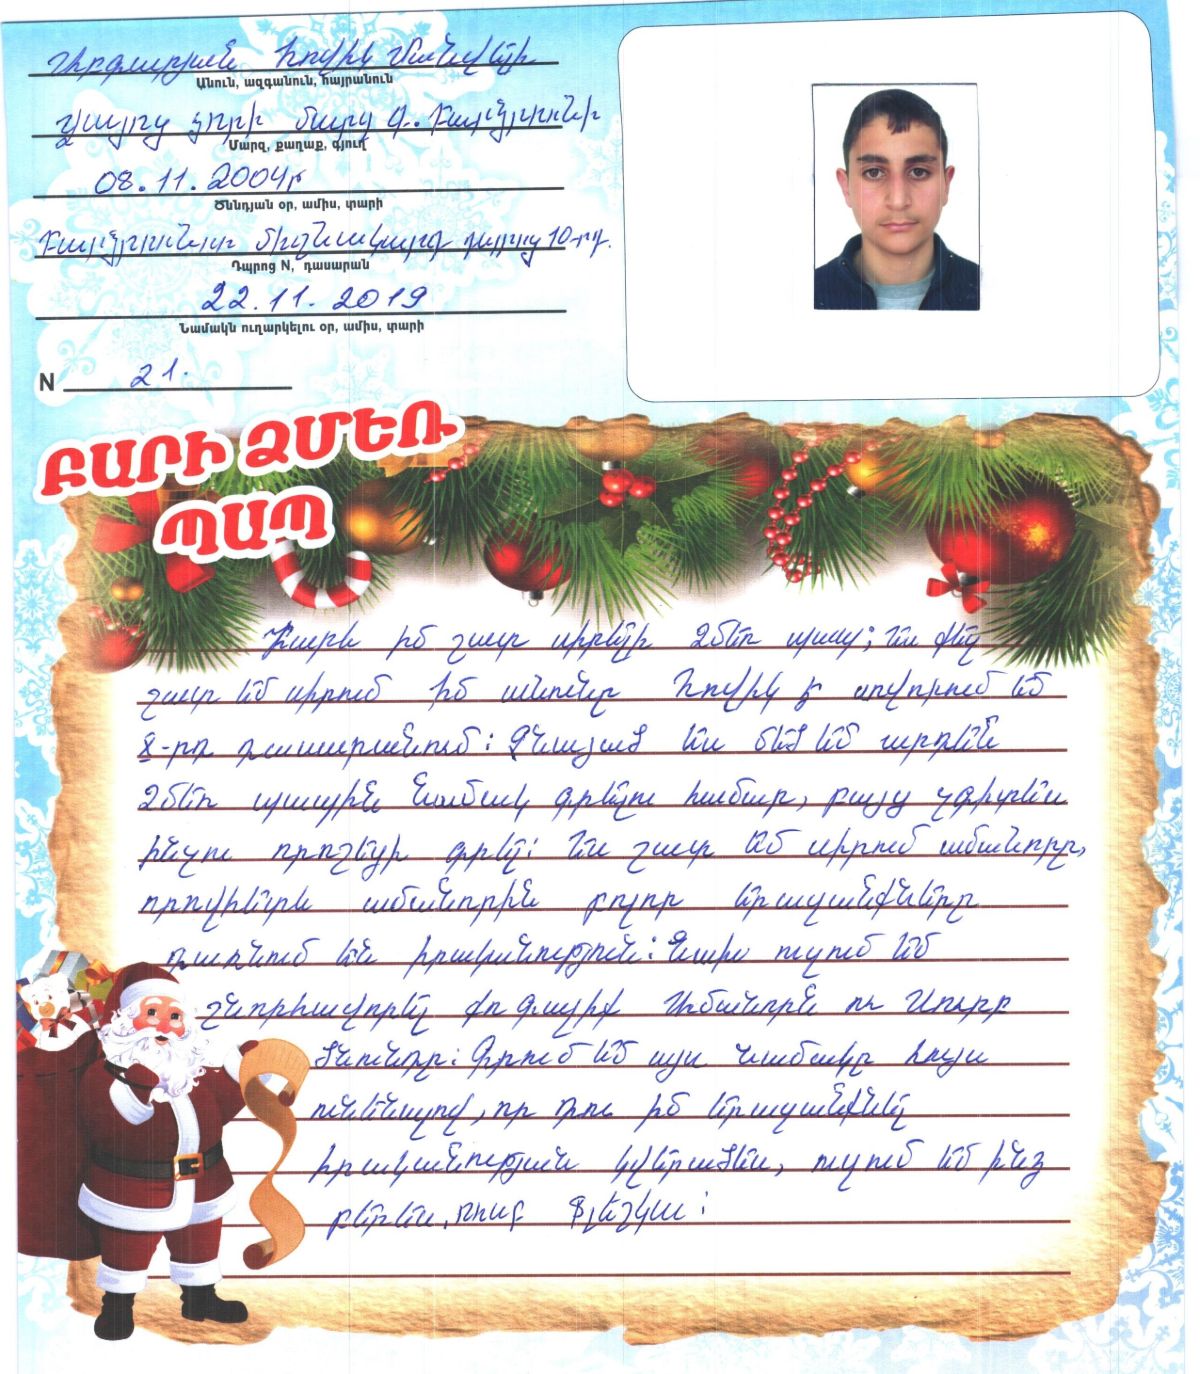 Հովիկ Մանվելի
Անուն, ազգանուն, հայրանուն
Վայոց ձորի մարզ գ.
Մարզ, քաղաք, գյուղ
08.11.2004թ
Ծննդյան օր, ամիս, տարի
միջնակարգ դպրոց 10-րդ.
Դպրոց N, դասարան
22.11.2019
Նամակն ուղարկելու օր, ամիս, տարի
N 21.
ԲԱՐԻ ՁՄԵՌ
ՊԱՊ
Բարև իմ շատ սիրելի Ձմեռ պապ; ես քեզ
շատ եմ սիրում իմ անունը Հովիկ է սովորում եմ
8-րդ դասարանում: Չնայած ես մեծ եմ արդեն
Ձմեռ պապին նամակ գրելու համար, բայց չգիտես
ինչու որոշեցի գրել: Ես շատ եմ սիրում ամանորը,
որովհետև ամանորին բոլոր երազանքները
դառնում են իրականություն: Նախ ուզում եմ
շնորհավորել քո գալիք Ամանորն ու Սուրբ
Ծնունդը: Գրում եմ այս նամակը հույս
ունենալով, որ դու իմ երազանքնել
իրականության կվերածես, ուզում եմ ինձ
բերես, ֆլեշկա: